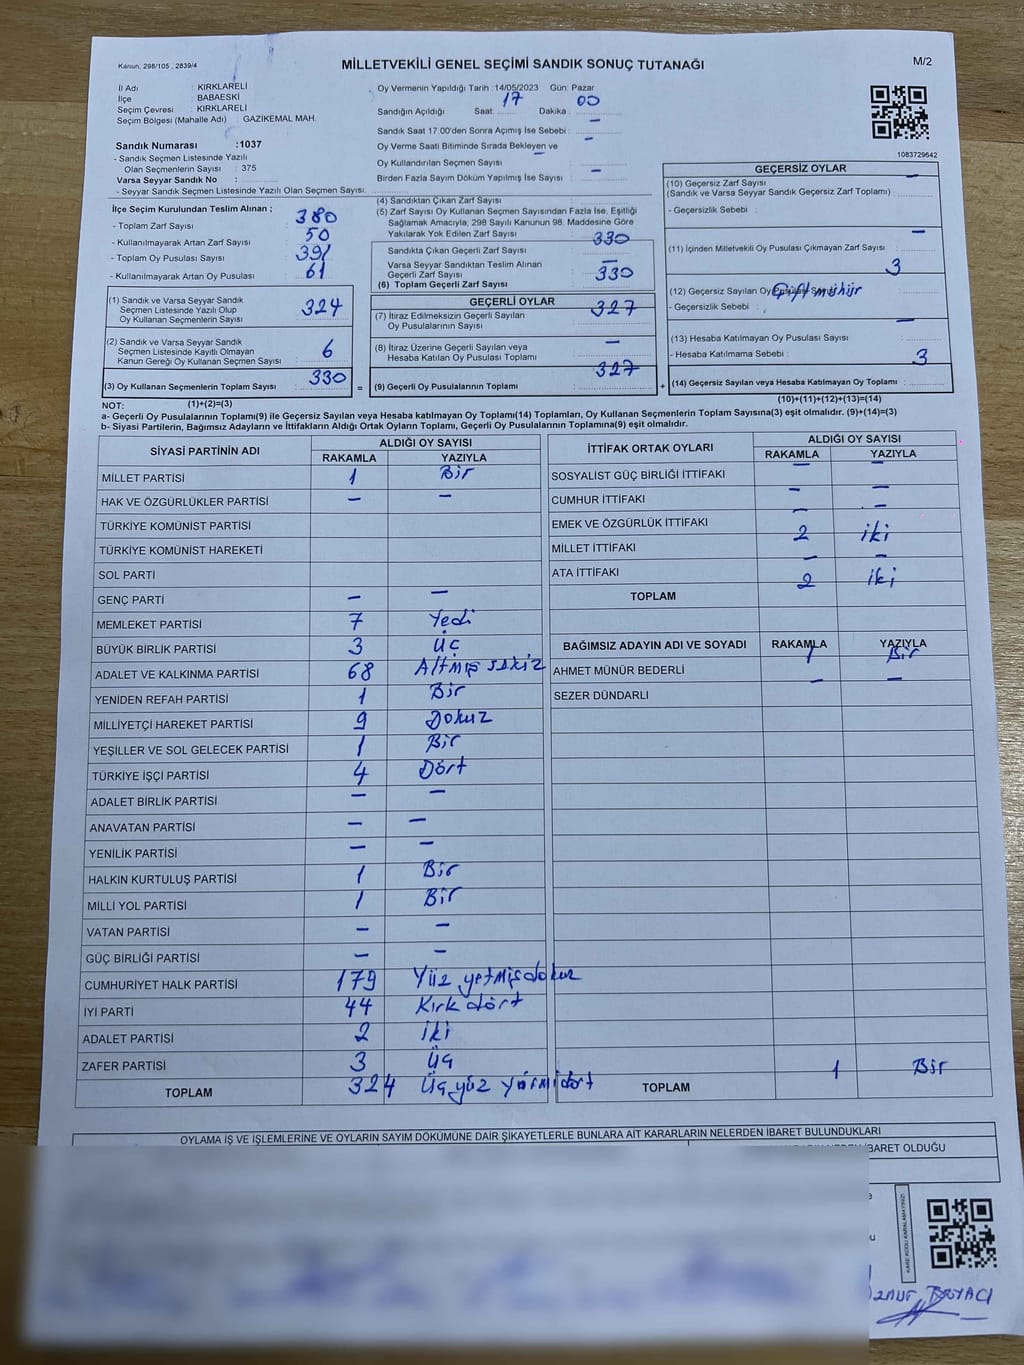 Kanun, 298/105 , 2839/4
MİLLETVEKİLİ GENEL SEÇİMİ SANDIK SONUÇ TUTANAĞI
M/2
İl Adı : KIRKLARELİ
İlçe : BABAESKİ
Seçim Çevresi : KIRKLARELİ
Seçim Bölgesi (Mahalle Adı) GAZİKEMAL MAH.
Sandık Numarası :1037
- Sandık Seçmen Listesinde Yazılı
Olan Seçmenlerin Sayısı : 375
Varsa Seyyar Sandık No :
- Seyyar Sandık Seçmen Listesinde Yazılı Olan Seçmen Sayısı:
Oy Vermenin Yapıldığı Tarih :14/05/2023 Gün: Pazar
Sandığın Açıldığı Saat: 17 Dakika : 00
Sandık Saat 17.00'den Sonra Açımış İse Sebebi : –
Oy Verme Saati Bitiminde Sırada Bekleyen ve
Oy Kullandırılan Seçmen Sayısı : –
Birden Fazla Sayım Döküm Yapılmış İse Sayısı : –
1083729642
İlçe Seçim Kurulundan Teslim Alınan ;
- Toplam Zarf Sayısı : 380
- Kullanılmayarak Artan Zarf Sayısı : 50
- Toplam Oy Pusulası Sayısı : 391
- Kullanılmayarak Artan Oy Pusulası : 61
(1) Sandık ve Varsa Seyyar Sandık
Seçmen Listesinde Yazılı Olup
Oy Kullanan Seçmenlerin Sayısı : 324
(2) Sandık ve Varsa Seyyar Sandık
Seçmen Listesinde Kayıtlı Olmayan
Kanun Gereği Oy Kullanan Seçmen Sayısı : 6
(3) Oy Kullanan Seçmenlerin Toplam Sayısı : 330
(1)+(2)=(3)
(4) Sandıktan Çıkan Zarf Sayısı :
(5) Zarf Sayısı Oy Kullanan Seçmen Sayısından Fazla İse, Eşitliği
Sağlamak Amacıyla, 298 Sayılı Kanunun 98. Maddesine Göre
Yakılarak Yok Edilen Zarf Sayısı :
Sandıkta Çıkan Geçerli Zarf Sayısı : 330
Varsa Seyyar Sandıktan Teslim Alınan
Geçerli Zarf Sayısı : –
(6) Toplam Geçerli Zarf Sayısı : 330
GEÇERLİ OYLAR
(7) İtiraz Edilmeksizin Geçerli Sayılan
Oy Pusulalarının Sayısı : 327
(8) İtiraz Üzerine Geçerli Sayılan veya
Hesaba Katılan Oy Pusulası Toplamı : –
= (9) Geçerli Oy Pusulalarının Toplamı : 327
GEÇERSİZ OYLAR
(10) Geçersiz Zarf Sayısı –
(Sandık ve Varsa Seyyar Sandık Geçersiz Zarf Toplamı) :
- Geçersizlik Sebebi :
(11) İçinden Milletvekili Oy Pusulası Çıkmayan Zarf Sayısı : –
(12) Geçersiz Sayılan Oy Pusulası Sayısı : 3
- Geçersizlik Sebebi : Çift mühür
(13) Hesaba Katılmayan Oy Pusulası Sayısı : –
- Hesaba Katılmama Sebebi :
+ (14) Geçersiz Sayılan veya Hesaba Katılmayan Oy Toplamı : 3
(10)+(11)+(12)+(13)=(14)
NOT:
a- Geçerli Oy Pusulalarının Toplamı(9) ile Geçersiz Sayılan veya Hesaba katılmayan Oy Toplamı(14) Toplamları, Oy Kullanan Seçmenlerin Toplam Sayısına(3) eşit olmalıdır. (9)+(14)=(3)
b- Siyasi Partilerin, Bağımsız Adayların ve İttifakların Aldığı Ortak Oyların Toplamı, Geçerli Oy Pusulalarının Toplamına(9) eşit olmalıdır.
SİYASİ PARTİNİN ADI ALDIĞI OY SAYISI
RAKAMLA YAZIYLA
MİLLET PARTİSİ 1 Bir
HAK VE ÖZGÜRLÜKLER PARTİSİ – –
TÜRKİYE KOMÜNİST PARTİSİ
TÜRKİYE KOMÜNİST HAREKETİ
SOL PARTİ
GENÇ PARTİ – –
MEMLEKET PARTİSİ 7 Yedi
BÜYÜK BİRLİK PARTİSİ 3 Üç
ADALET VE KALKINMA PARTİSİ 68 Altmış sekiz
YENİDEN REFAH PARTİSİ 1 Bir
MİLLİYETÇİ HAREKET PARTİSİ 9 Dokuz
YEŞİLLER VE SOL GELECEK PARTİSİ 1 Bir
TÜRKİYE İŞÇİ PARTİSİ 4 Dört
ADALET BİRLİK PARTİSİ – –
ANAVATAN PARTİSİ – –
YENİLİK PARTİSİ – –
HALKIN KURTULUŞ PARTİSİ 1 Bir
MİLLİ YOL PARTİSİ 1 Bir
VATAN PARTİSİ – –
GÜÇ BİRLİĞİ PARTİSİ – –
CUMHURİYET HALK PARTİSİ 179 Yüz yetmişdokuz
İYİ PARTİ 44 Kırk dört
ADALET PARTİSİ 2 iki
ZAFER PARTİSİ 3 Üç
TOPLAM 324 Üç yüz yirmidört
İTTİFAK ORTAK OYLARI ALDIĞI OY SAYISI
RAKAMLA YAZIYLA
SOSYALİST GÜÇ BİRLİĞİ İTTİFAKI – –
CUMHUR İTTİFAKI – –
EMEK VE ÖZGÜRLÜK İTTİFAKI – –
MİLLET İTTİFAKI 2 iki
ATA İTTİFAKI – –
TOPLAM 2 iki
BAĞIMSIZ ADAYIN ADI VE SOYADI RAKAMLA YAZIYLA
AHMET MÜNÜR BEDERLİ 1 Bir
SEZER DÜNDARLI – –
TOPLAM 1 Bir
OYLAMA İŞ VE İŞLEMLERİNE VE OYLARIN SAYIM DÖKÜMÜNE DAİR ŞİKAYETLERLE BUNLARA AİT KARARLARIN NELERDEN İBARET BULUNDUKLARI
İBARET OLDUĞU